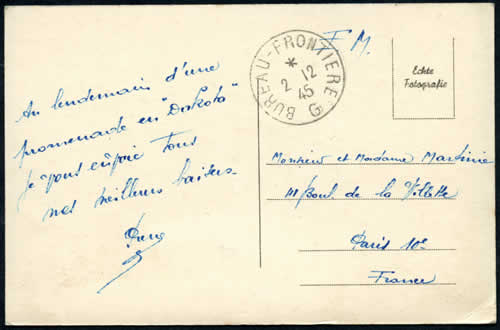 Au lendemain d'une
promenade en "Dakota"
je vous envoie tous
mes meilleurs baisers.
F.M.
BUREAU-FRONTIERE G
*
2 12
45
Echte
Fotografie
Monsieur et Madame Martinie
111 Boul. de la Villette
Paris 10e
France